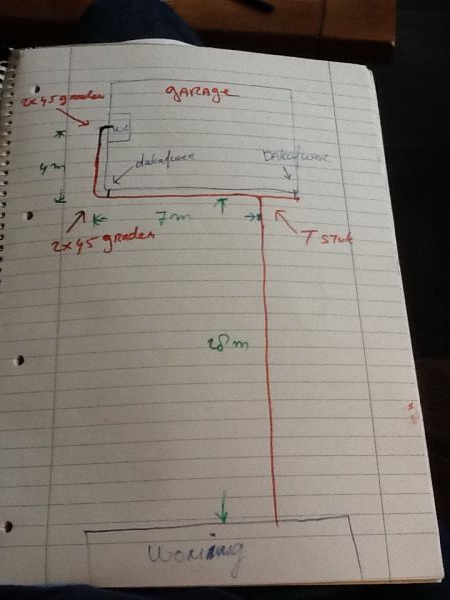 GARAGE
2x45 graden
WC
4m
dakafvoer
DAKafvoer
7m
2x45 graden
T STUK
28m
Woning